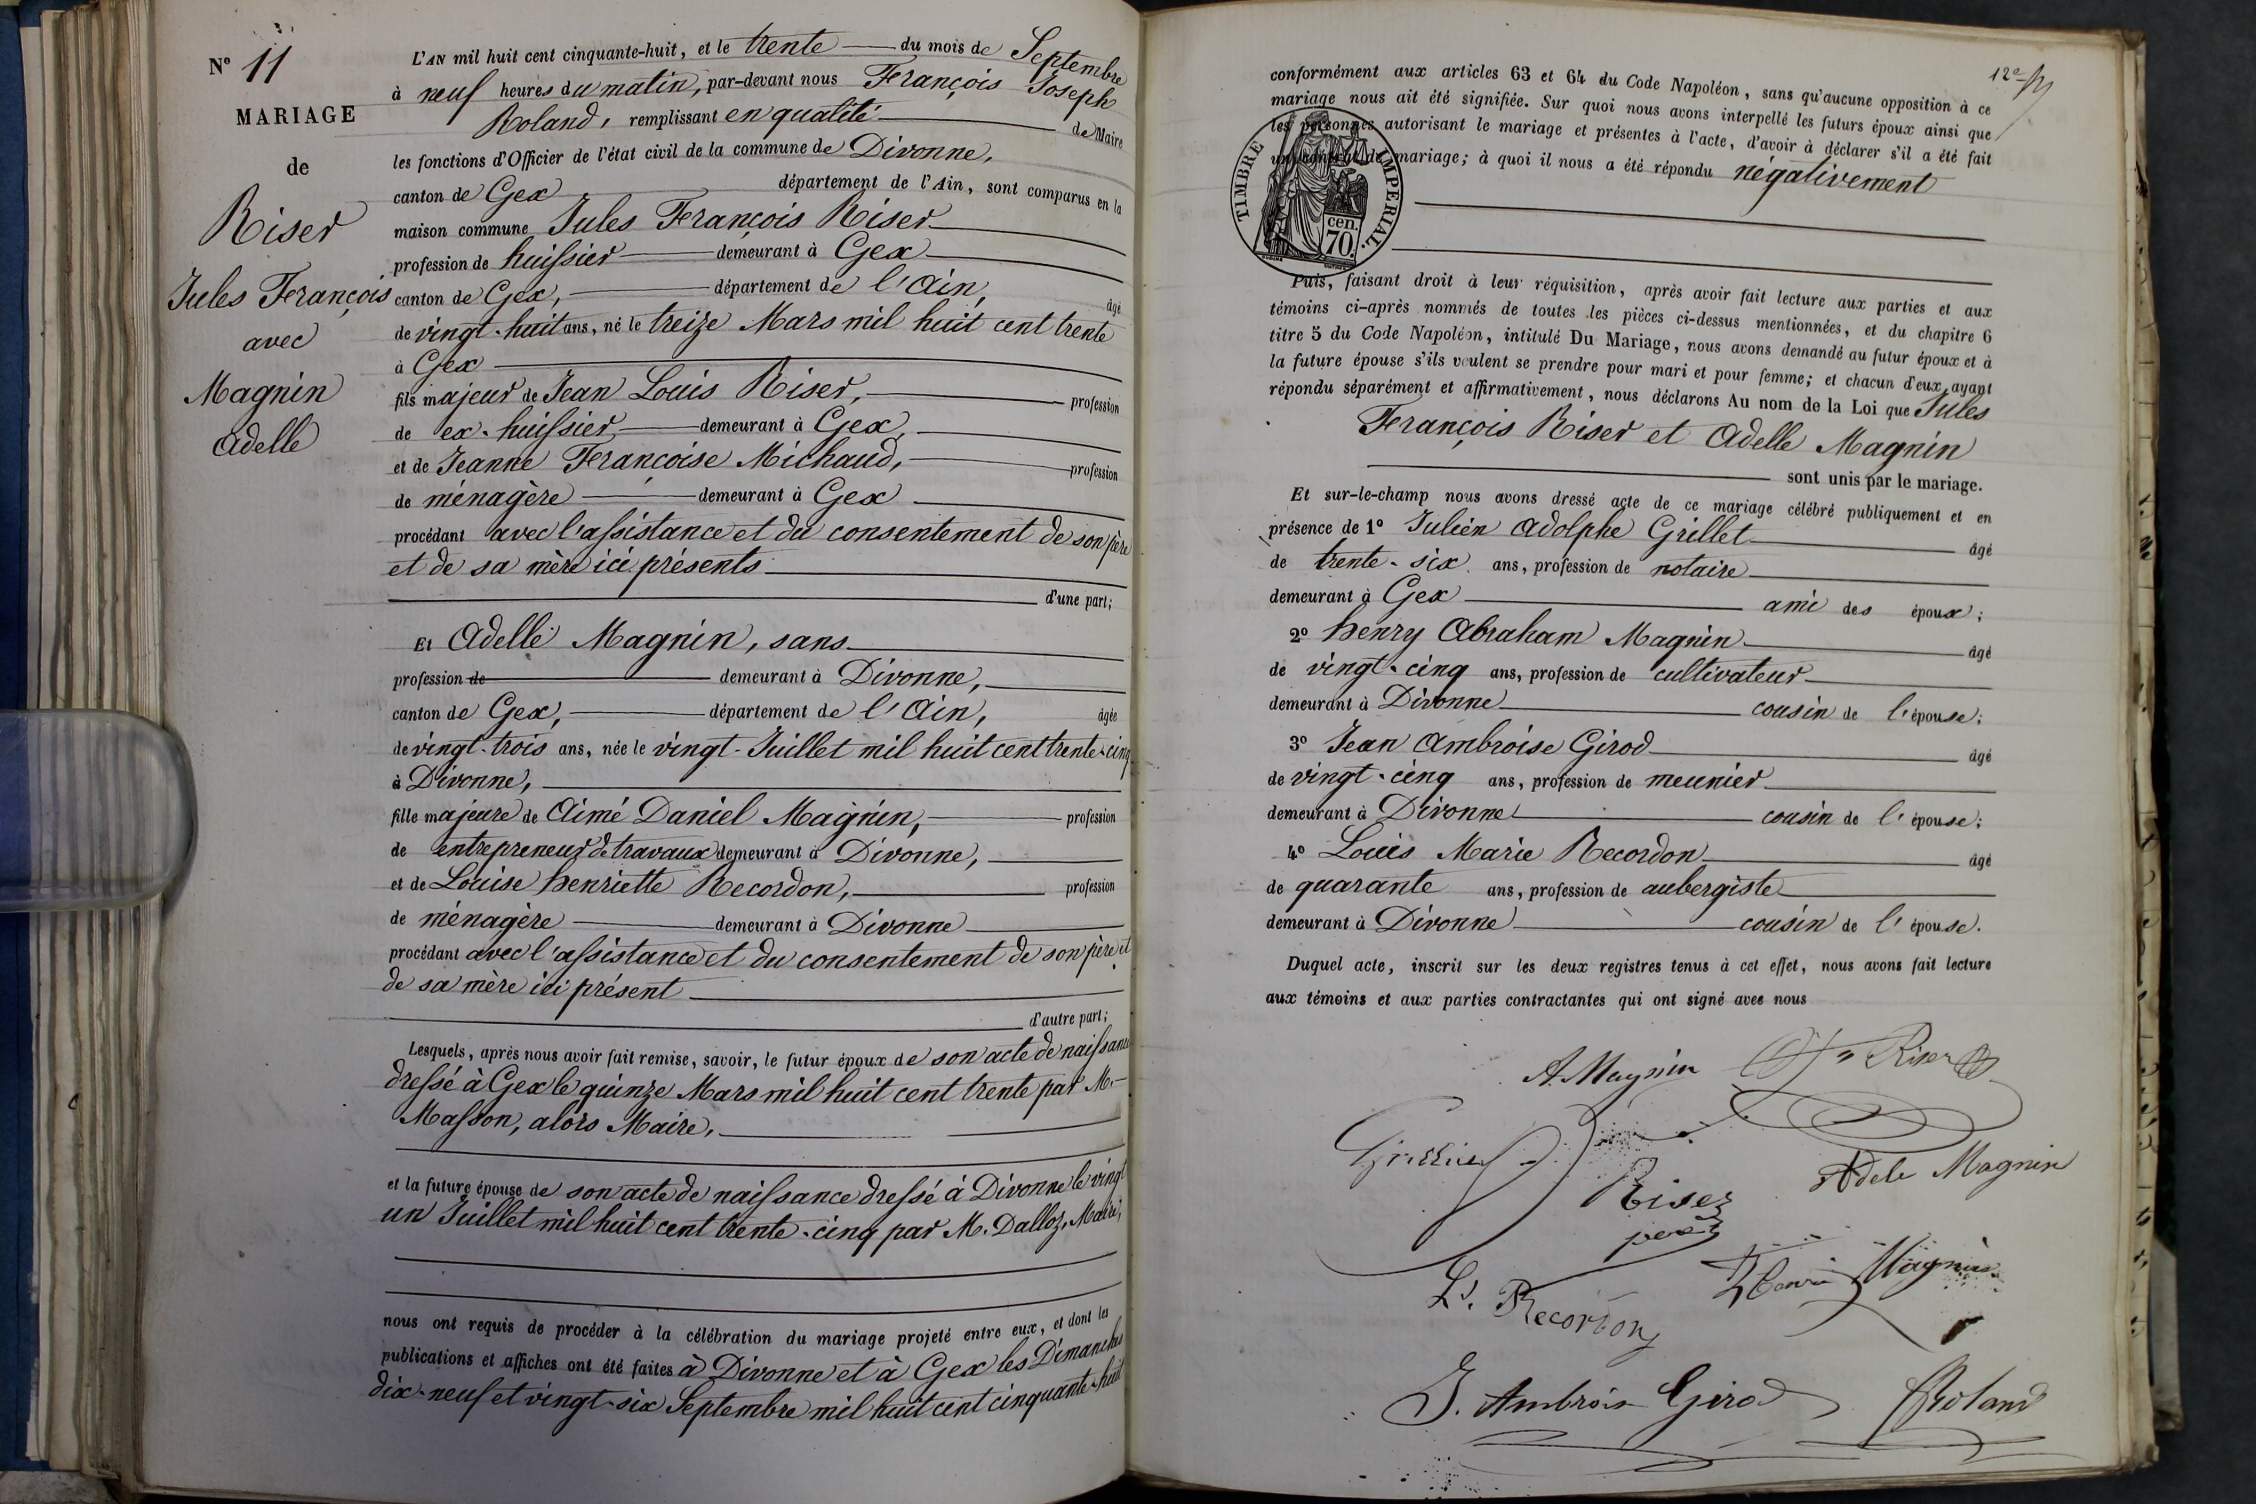 N° 11
MARIAGE
de
Riser
Jules François
avec
Magnin
Adelle
L'AN mil huit cent cinquante-huit, et le trente du mois de Septembre
à neuf heures du matin, par-devant nous François Joseph
Roland, remplissant en qualité de Maire
les fonctions d'Officier de l'état civil de la commune de Divonne,
canton de Gex département de l'Ain, sont comparus en la
maison commune Jules François Riser
profession de huissier demeurant à Gex
canton de Gex, département de l'Ain, âgé
de vingt-huit ans, né le treize Mars mil huit cent trente
à Gex
fils majeur de Jean Louis Riser, profession
de ex-huissier, demeurant à Gex,
et de Jeanne Françoise Michaud, profession
de ménagère demeurant à Gex
procédant avec l'assistance et du consentement de son père
et de sa mère ici présents
d'une part;
Et Adelle Magnin, sans
profession de demeurant à Divonne,
canton de Gex, département de l'Ain, âgée
de vingt-trois ans, née le vingt Juillet mil huit cent trente-cinq
à Divonne,
fille majeure de Aimé Daniel Magnin, profession
de entrepreneur de travaux demeurant à Divonne,
et de Louise henriette Recordon, profession
de ménagère demeurant à Divonne
procédant avec l'assistance et du consentement de son père et
de sa mère ici présent
d'autre part;
Lesquels, après nous avoir fait remise, savoir, le futur époux de son acte de naissance
dressé à Gex le quinze Mars mil huit cent trente par M.
Masson, alors Maire,
et la future épouse de son acte de naissance dressé à Divonne le vingt
un Juillet mil huit cent trente-cinq par M. Dalloz, Maire,
nous ont requis de procéder à la célébration du mariage projeté entre eux, et dont les
publications et affiches ont été faites à Divonne et à Gex les Dimanches
dix-neuf et vingt-six Septembre mil huit cent cinquante-huit
12e
conformément aux articles 63 et 64 du Code Napoléon, sans qu'aucune opposition à ce
mariage nous ait été signifiée. Sur quoi nous avons interpellé les futurs époux ainsi que
les personnes autorisant le mariage et présentes à l'acte, d'avoir à déclarer s'il a été fait
un contrat de mariage; à quoi il nous a été répondu négativement
TIMBRE IMPERIAL.
cen.
70.
Puis, faisant droit à leur réquisition, après avoir fait lecture aux parties et aux
témoins ci-après nommés de toutes les pièces ci-dessus mentionnées, et du chapitre 6
titre 5 du Code Napoléon, intitulé Du Mariage, nous avons demandé au futur époux et à
la future épouse s'ils veulent se prendre pour mari et pour femme; et chacun d'eux ayant
répondu séparément et affirmativement, nous déclarons Au nom de la Loi que Jules
François Riser et Adelle Magnin
sont unis par le mariage.
Et sur-le-champ nous avons dressé acte de ce mariage célébré publiquement et en
présence de 1° Julien Adolphe Grillet âgé
de trente-six ans, profession de notaire
demeurant à Gex ami des époux;
2° henry Abraham Magnin âgé
de vingt-cinq ans, profession de cultivateur
demeurant à Divonne cousin de l'épouse;
3° Jean Ambroise Girod âgé
de vingt-cinq ans, profession de meunier
demeurant à Divonne cousin de l'épouse;
4° Louis Marie Recordon âgé
de quarante ans, profession de aubergiste
demeurant à Divonne cousin de l'épouse.
Duquel acte, inscrit sur les deux registres tenus à cet effet, nous avons fait lecture
aux témoins et aux parties contractantes qui ont signé avec nous
A. Magnin Riser
Riser
père
Adele Magnin
Ls. Recordon
Henri Magnin
J. Ambrois Girod
Roland